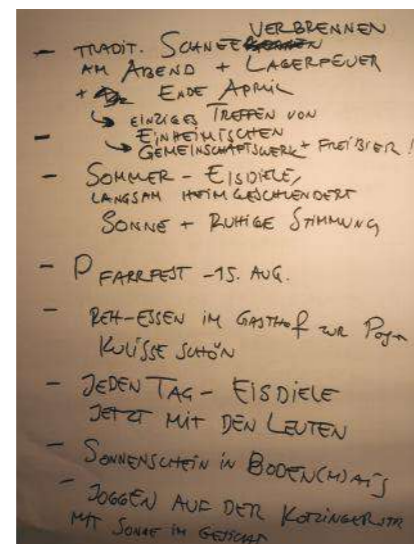 VERBRENNEN
- TRADIT. SCHNEE
AM ABEND + LAGERFEUER
+ ENDE APRIL
↳ EINZIGES TREFFEN VON
- EINHEIMISCHEN
↳ GEMEINSCHAFTSWERK + FREIBIER!
- SOMMER - EISDIELE,
LANGSAM HEIMGESCHLENDERT
SONNE + RUHIGE STIMMUNG
- PFARRFEST - 15. AUG.
- REH-ESSEN IM GASTHOF ZUR POST
KULISSE SCHÖN
- JEDEN TAG - EISDIELE
JETZT MIT DEN LEUTEN
- SONNENSCHEIN IN BODEN(M)AIS
- JOGGEN AUF DER KÖTZINGERSTR
MIT SONNE IM GESICHT